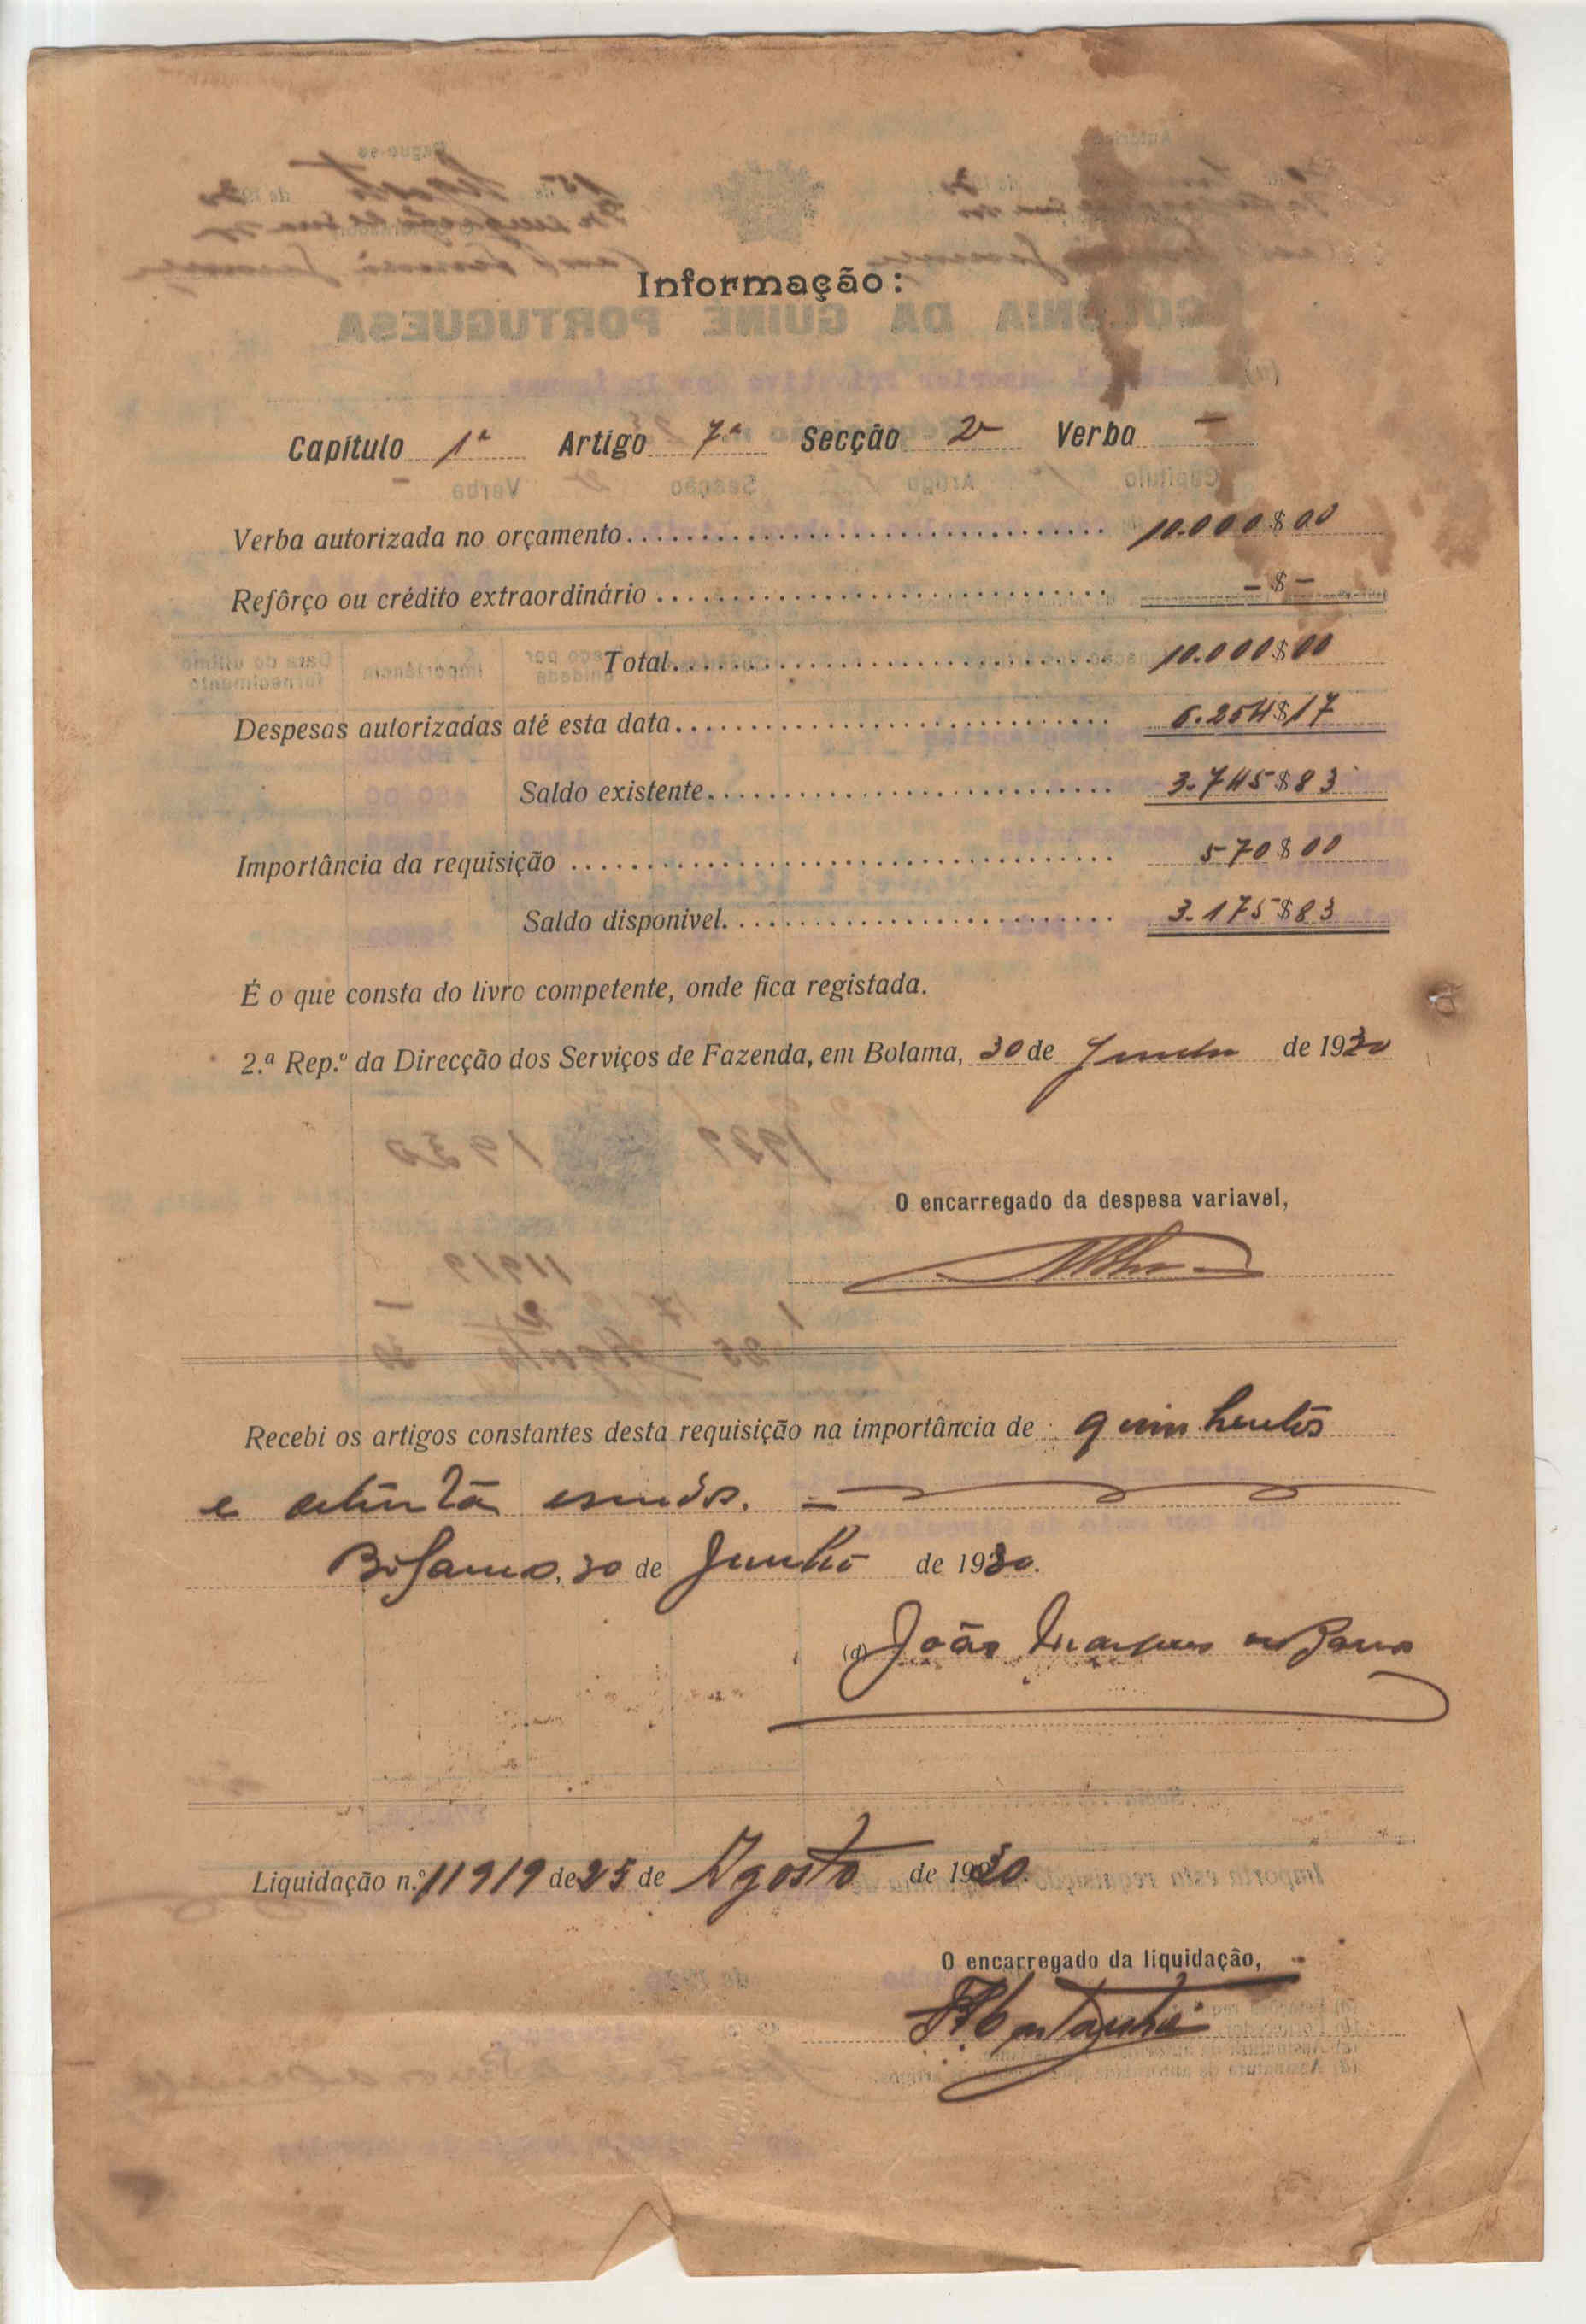 Informação:
Capítulo 1º Artigo 7º Secção 2ª Verba —
Verba autorizada no orçamento 10.000$00
Refôrço ou crédito extraordinário —$—
Total 10.000$00
Despesas autorizadas até esta data 6.254$17
Saldo existente 3.745$83
Importância da requisição 570$00
Saldo disponivel 3.175$83
É o que consta do livro competente, onde fica registada.
2.ª Rep.º da Direcção dos Serviços de Fazenda, em Bolama, 30 de Junho de 1930
O encarregado da despesa variavel,
Recebi os artigos constantes desta requisição na importância de quinhentos
e setenta escudos.
Bolama, 30 de Junho de 1930.
(d) João Marques de Barros
Liquidação n.º 11919 de 25 de Agosto de 1930.
O encarregado da liquidação,